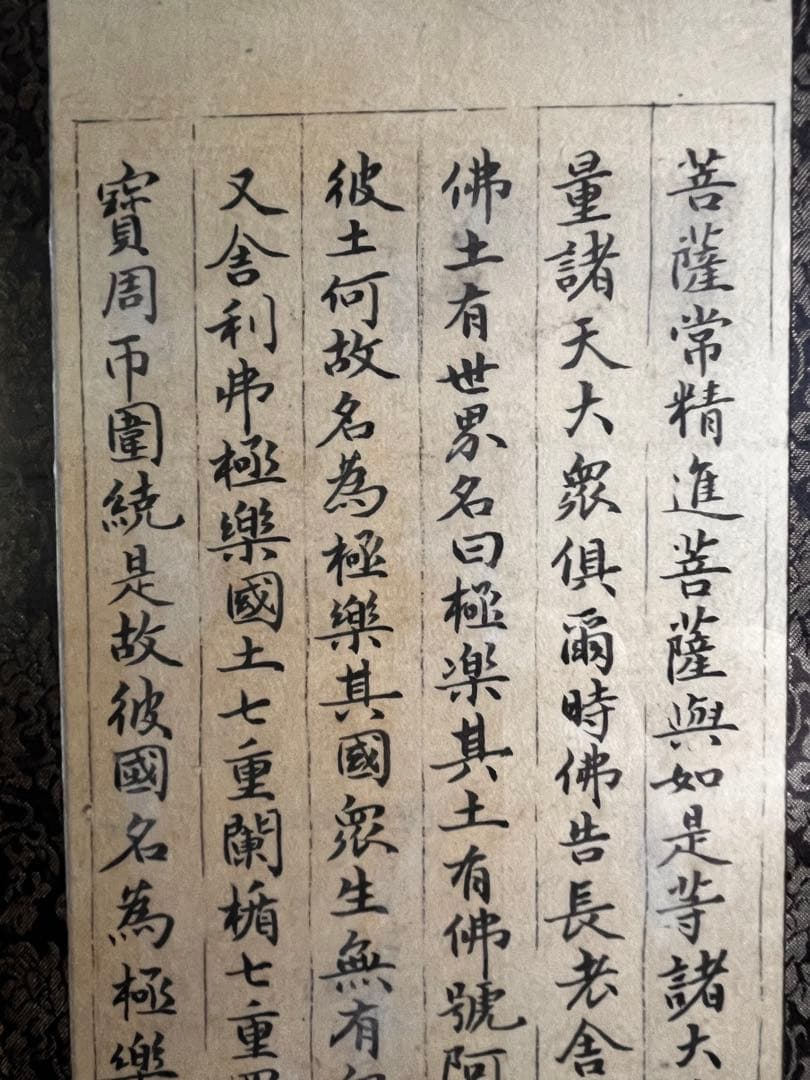 菩薩常精進菩薩與如是等諸大
量諸天大衆俱爾時佛告長老舍
佛土有世界名曰極楽其土有佛號阿
彼土何故名為極樂其國衆生無有
又舎利弗極樂國土七重闌楯七重
寶周帀圍繞是故彼國名為極樂